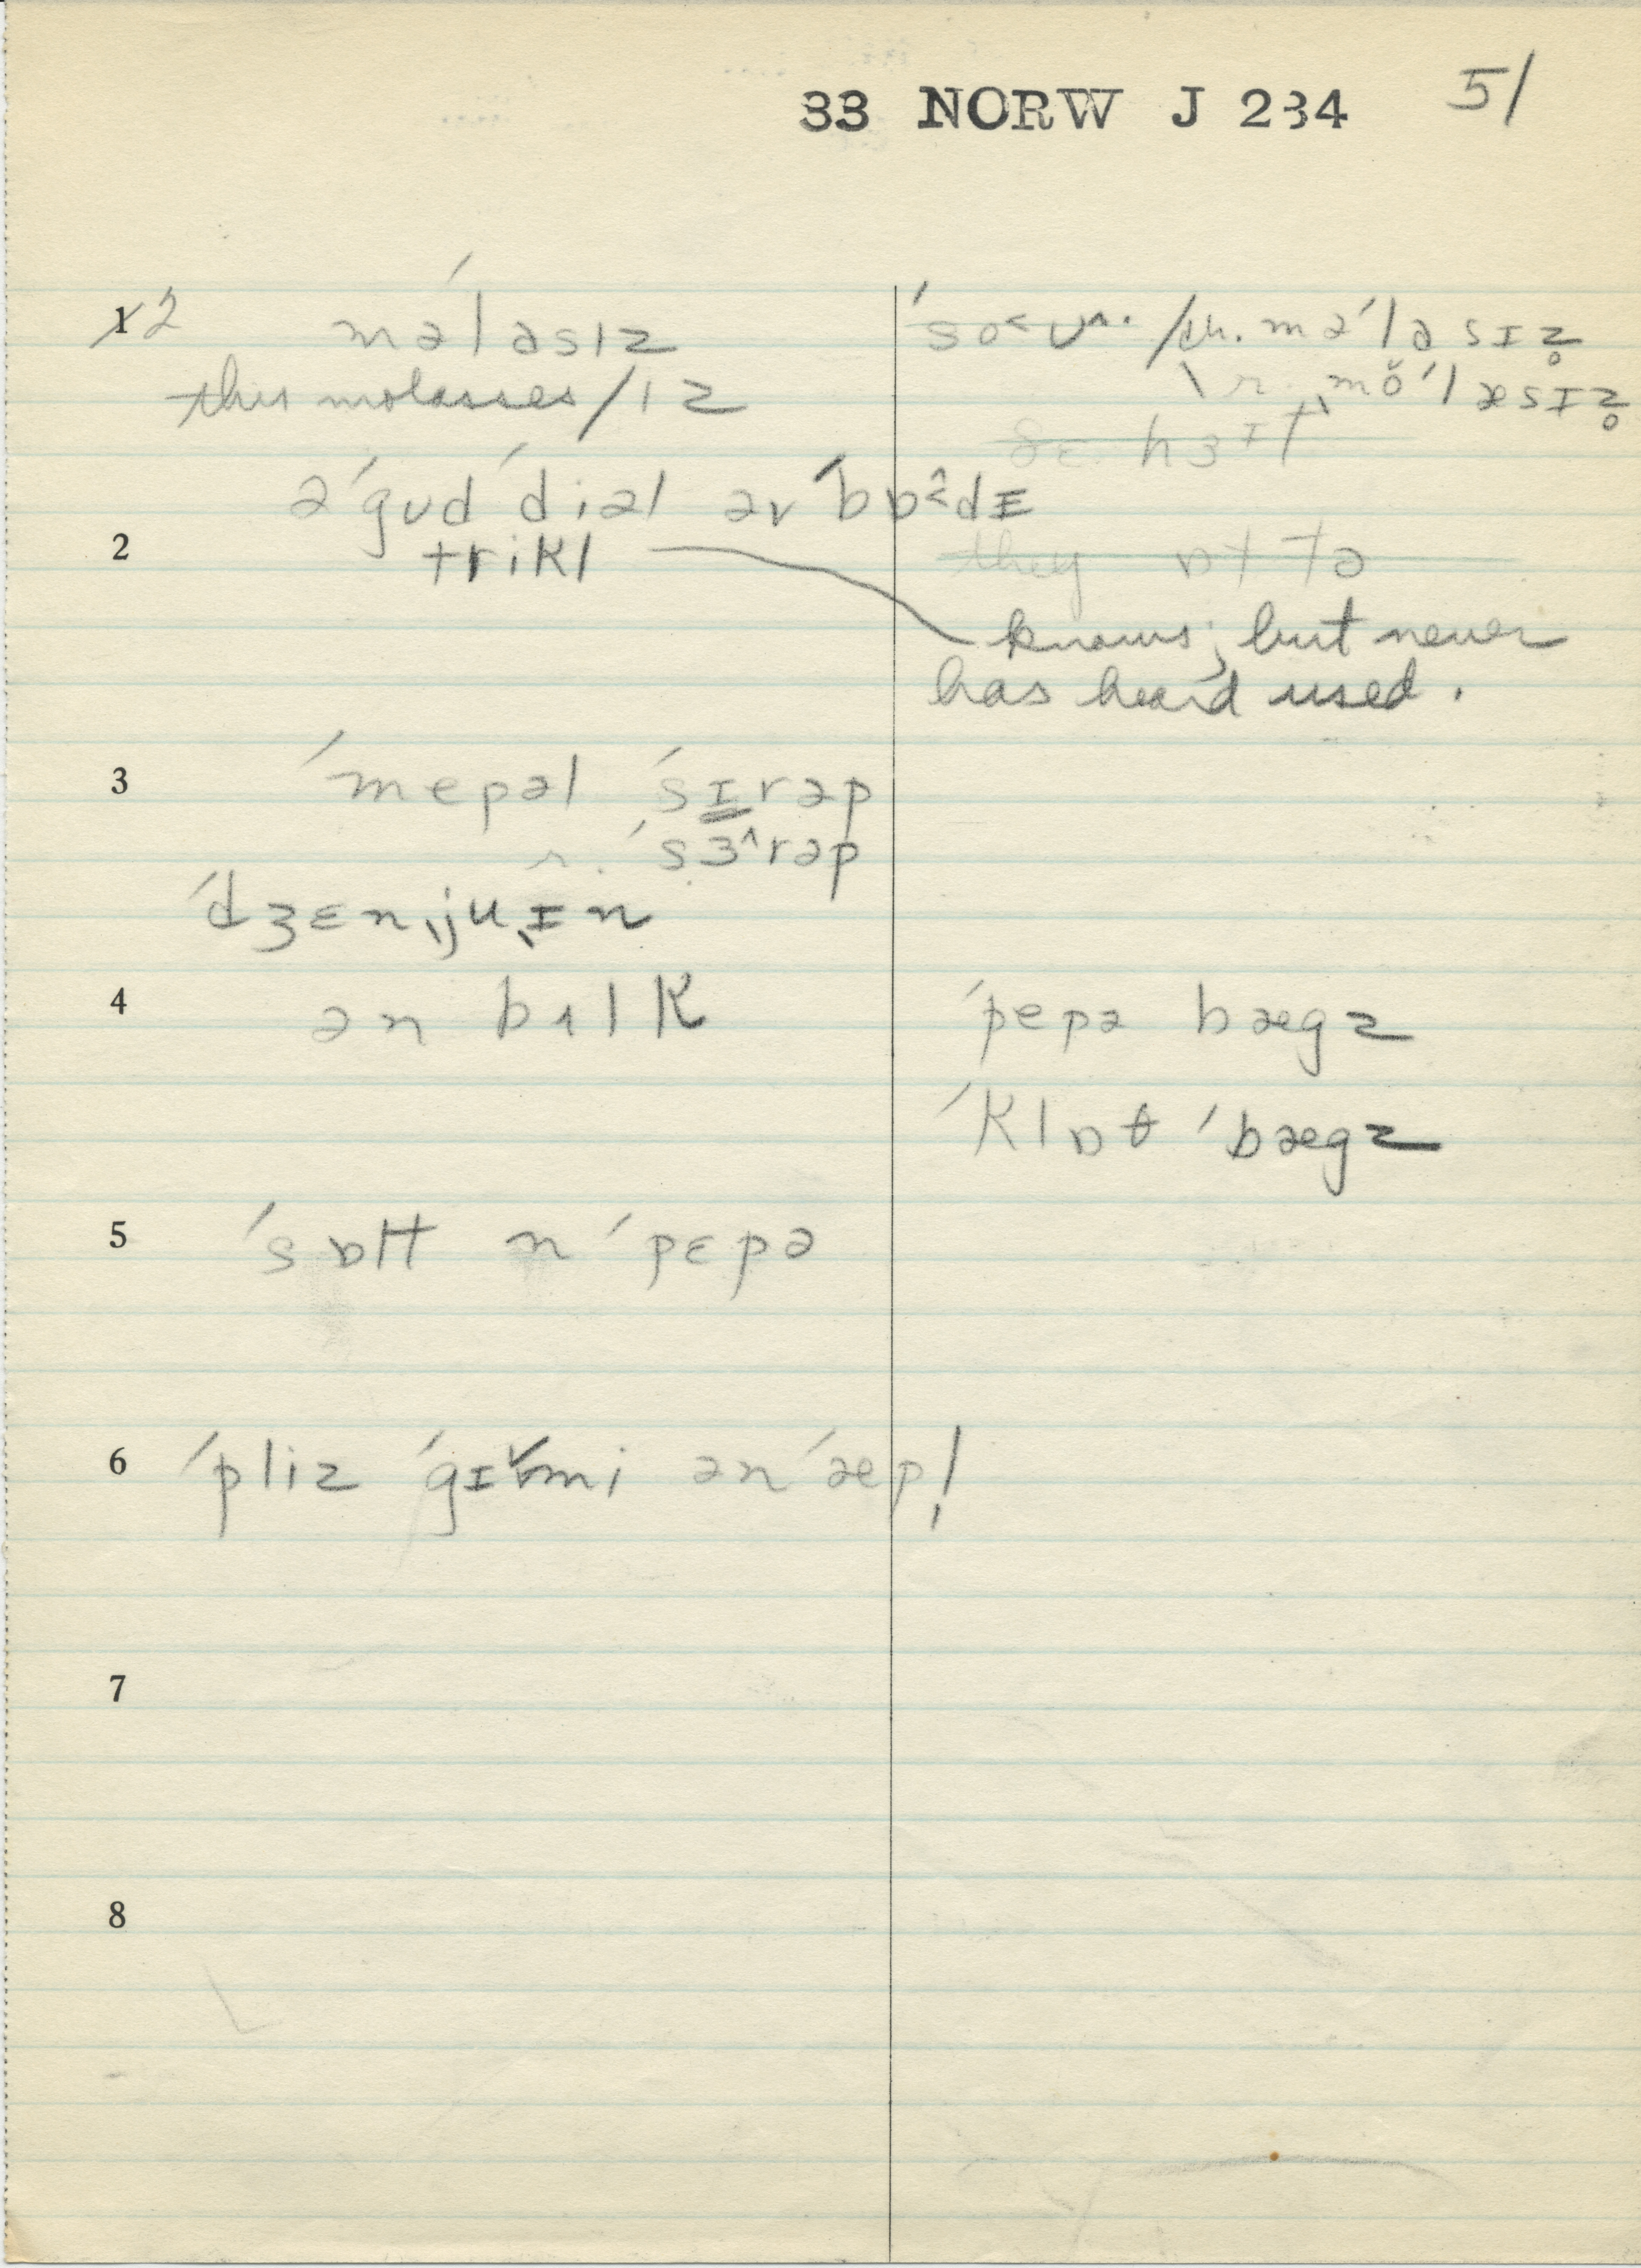 33 NORW J 234 51
1 2 məˈlasɪz
this molasses/ɪz
ˈso˂ʊ^. / th. məˈləsɪz̥
\ r. ˌmŏˈlæsɪz̥
əˈgʊd ˈdiəl əv ˈbɒ˂̂dɪ
2 trikl
they ɒt tə
knows; but never
has heard used.
3 ˈmepəl ˈsɪrəp
r. ˈsɜ^rəp
ˈdʒɛnˌjuˌɪn
4 ən bʌlk
ˈpepə bægz
ˈklɒθ ˈbægz
5 ˈsɒlt n ˈpɛpə
6 ˈpliz ˈgɪv̆mi ən ˈæpl̩
7
8